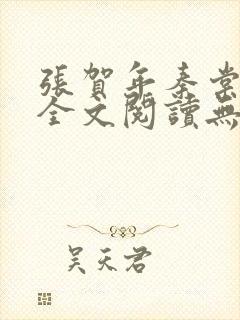 張賀年秦棠
全文閱讀無
吳天君